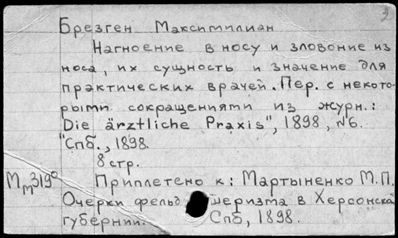 Брезген Максимилиан
Нагноение в носу и зловоние из
носа, их сущность и значение для
практических врачей. Пер. с некото-
рыми сокращениями из журн.:
"Die ärztliche Praxis", 1898, №6.
Спб., 1898.
8 стр.
Приплетено к: Мартыненко М.П.
Очерки фельдшеризма в Херсонск
губернии. Спб, 1898.